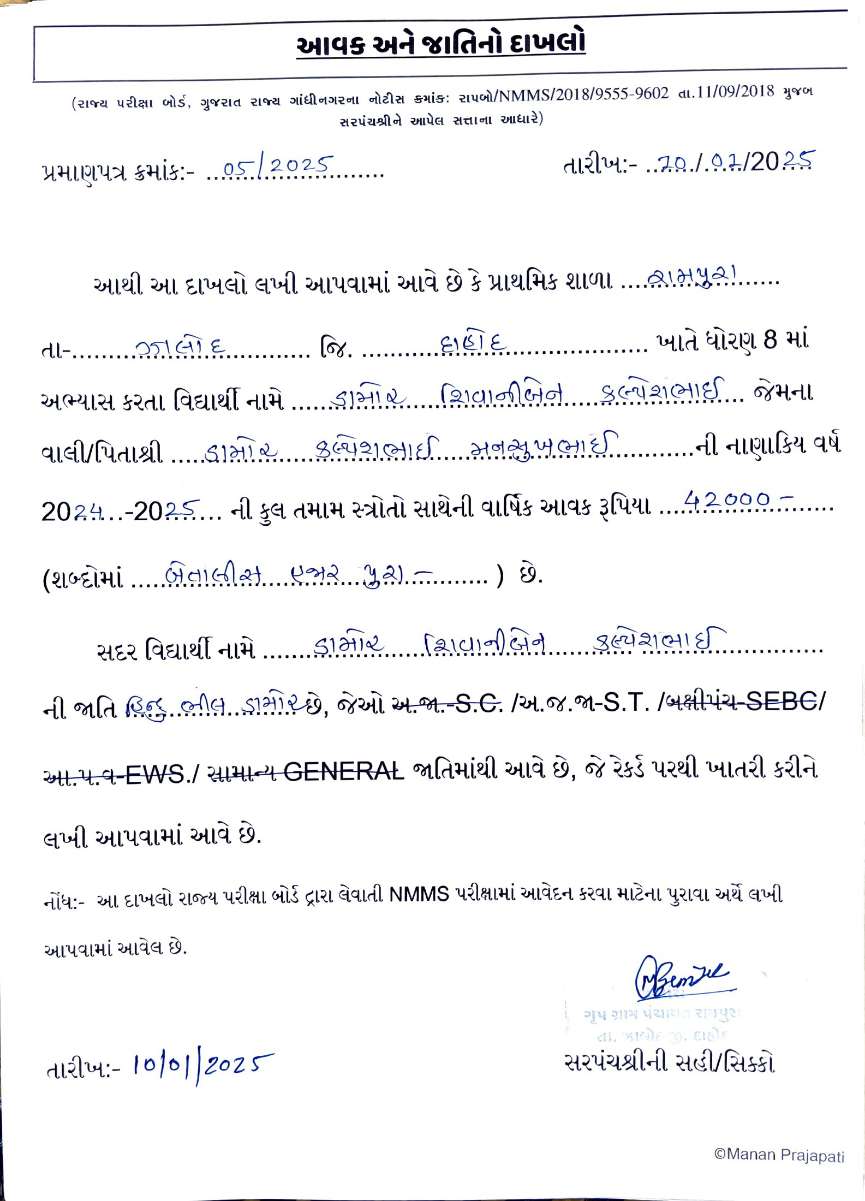 આવક અને જાતિનો દાખલો
(રાજ્ય પરીક્ષા બોર્ડ, ગુજરાત રાજ્ય ગાંધીનગરના નોટીસ ક્રમાંક: રાપબો/NMMS/2018/9555-9602 તા.11/09/2018 મુજબ
સરપંચશ્રીને આપેલ સત્તાના આધારે)
પ્રમાણપત્ર ક્રમાંક:- ...05/2025... તારીખ:- ..10./.01./2025
આથી આ દાખલો લખી આપવામાં આવે છે કે પ્રાથમિક શાળા ....રામપુરા......
તા-.........ઝાલોદ............ જિ. ............દાહોદ.................. ખાતે ધોરણ 8 માં
અભ્યાસ કરતા વિદ્યાર્થી નામે ......ડામોર.....શિવાનીબેન.....કલ્પેશભાઈ... જેમના
વાલી/પિતાશ્રી .....ડામોર.....કલ્પેશભાઈ.....મનસુખભાઈ..........ની નાણાકિય વર્ષ
2024...-2025.... ની કુલ તમામ સ્ત્રોતો સાથેની વાર્ષિક આવક રૂપિયા ....42000-......
(શબ્દોમાં .....બેતાલીસ....હજાર...પુરા.-......... ) છે.
સદર વિદ્યાર્થી નામે ........ડામોર......શિવાનીબેન.....કલ્પેશભાઈ.............
ની જાતિ હિન્દુ..ભીલ..ડામોર છે, જેઓ અ.જા.-S.C. /અ.જ.જા-S.T. /બક્ષીપંચ-SEBC/
આ.પ.વ-EWS./ સામાન્ય GENERAL જાતિમાંથી આવે છે, જે રેકર્ડ પરથી ખાતરી કરીને
લખી આપવામાં આવે છે.
નોંધ:- આ દાખલો રાજ્ય પરીક્ષા બોર્ડ દ્વારા લેવાતી NMMS પરીક્ષામાં આવેદન કરવા માટેના પુરાવા અર્થે લખી
આપવામાં આવેલ છે.
ગૃપ ગ્રામ પંચાયત રામપુરા
તા. ઝાલોદ જી. દાહોદ
તારીખ:- 10/01/2025 સરપંચશ્રીની સહી/સિક્કો
©Manan Prajapati